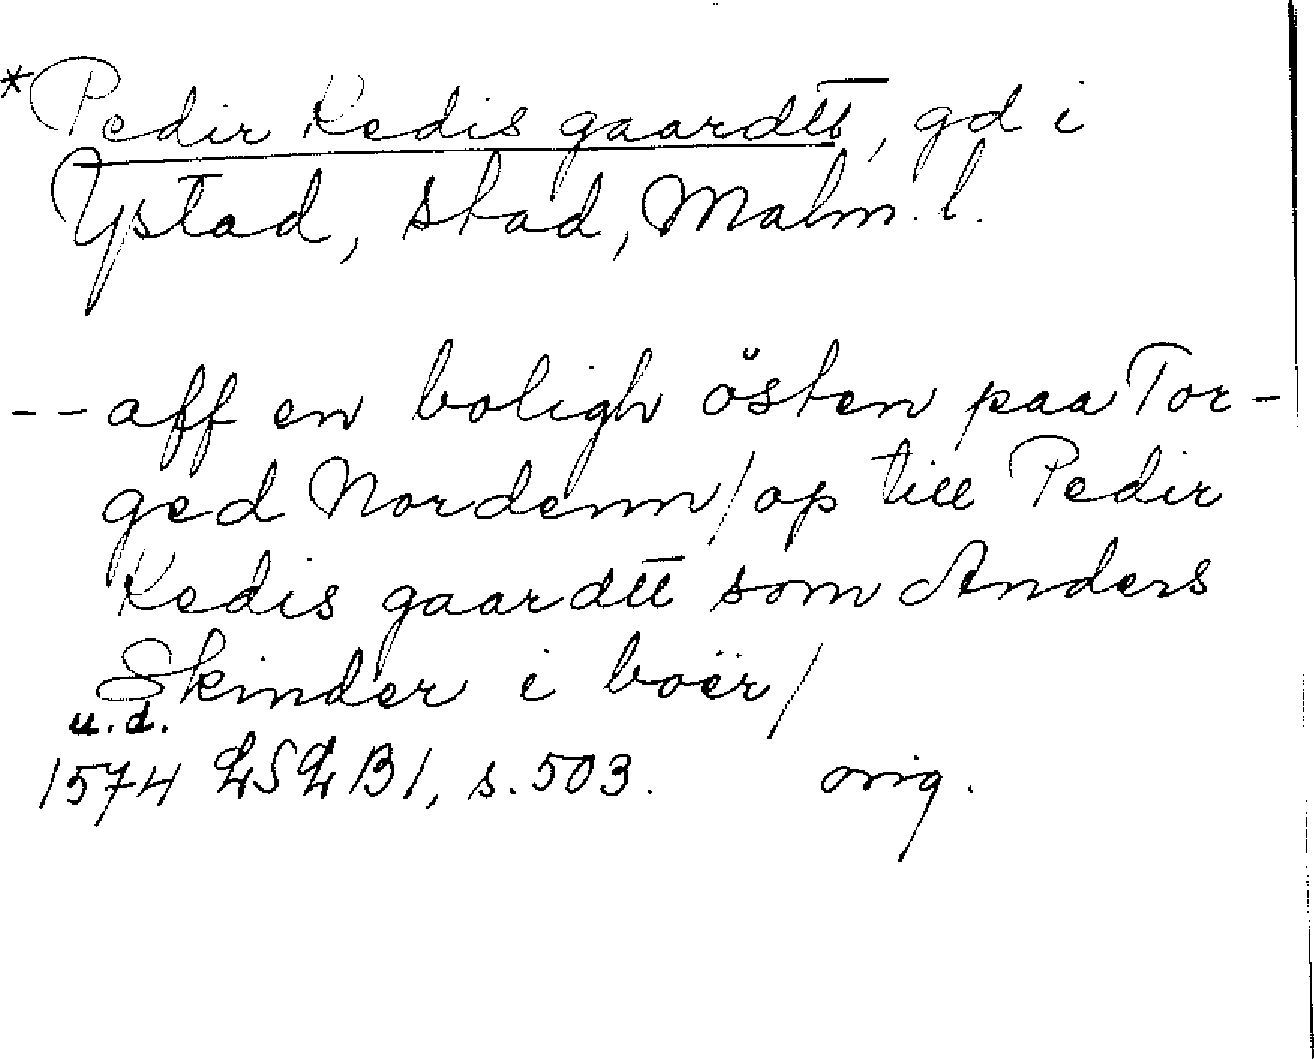 *Pedir Kedis gaardtt, gd i
Ystad, stad, Malm. l.
-- aff en boligh östen paa Tor-
ged Nordenn/ op till Pedir
Kedis gaardtt som Anders
Skinder i boër/
u.d.
1574 LSLB1, s. 503. orig.